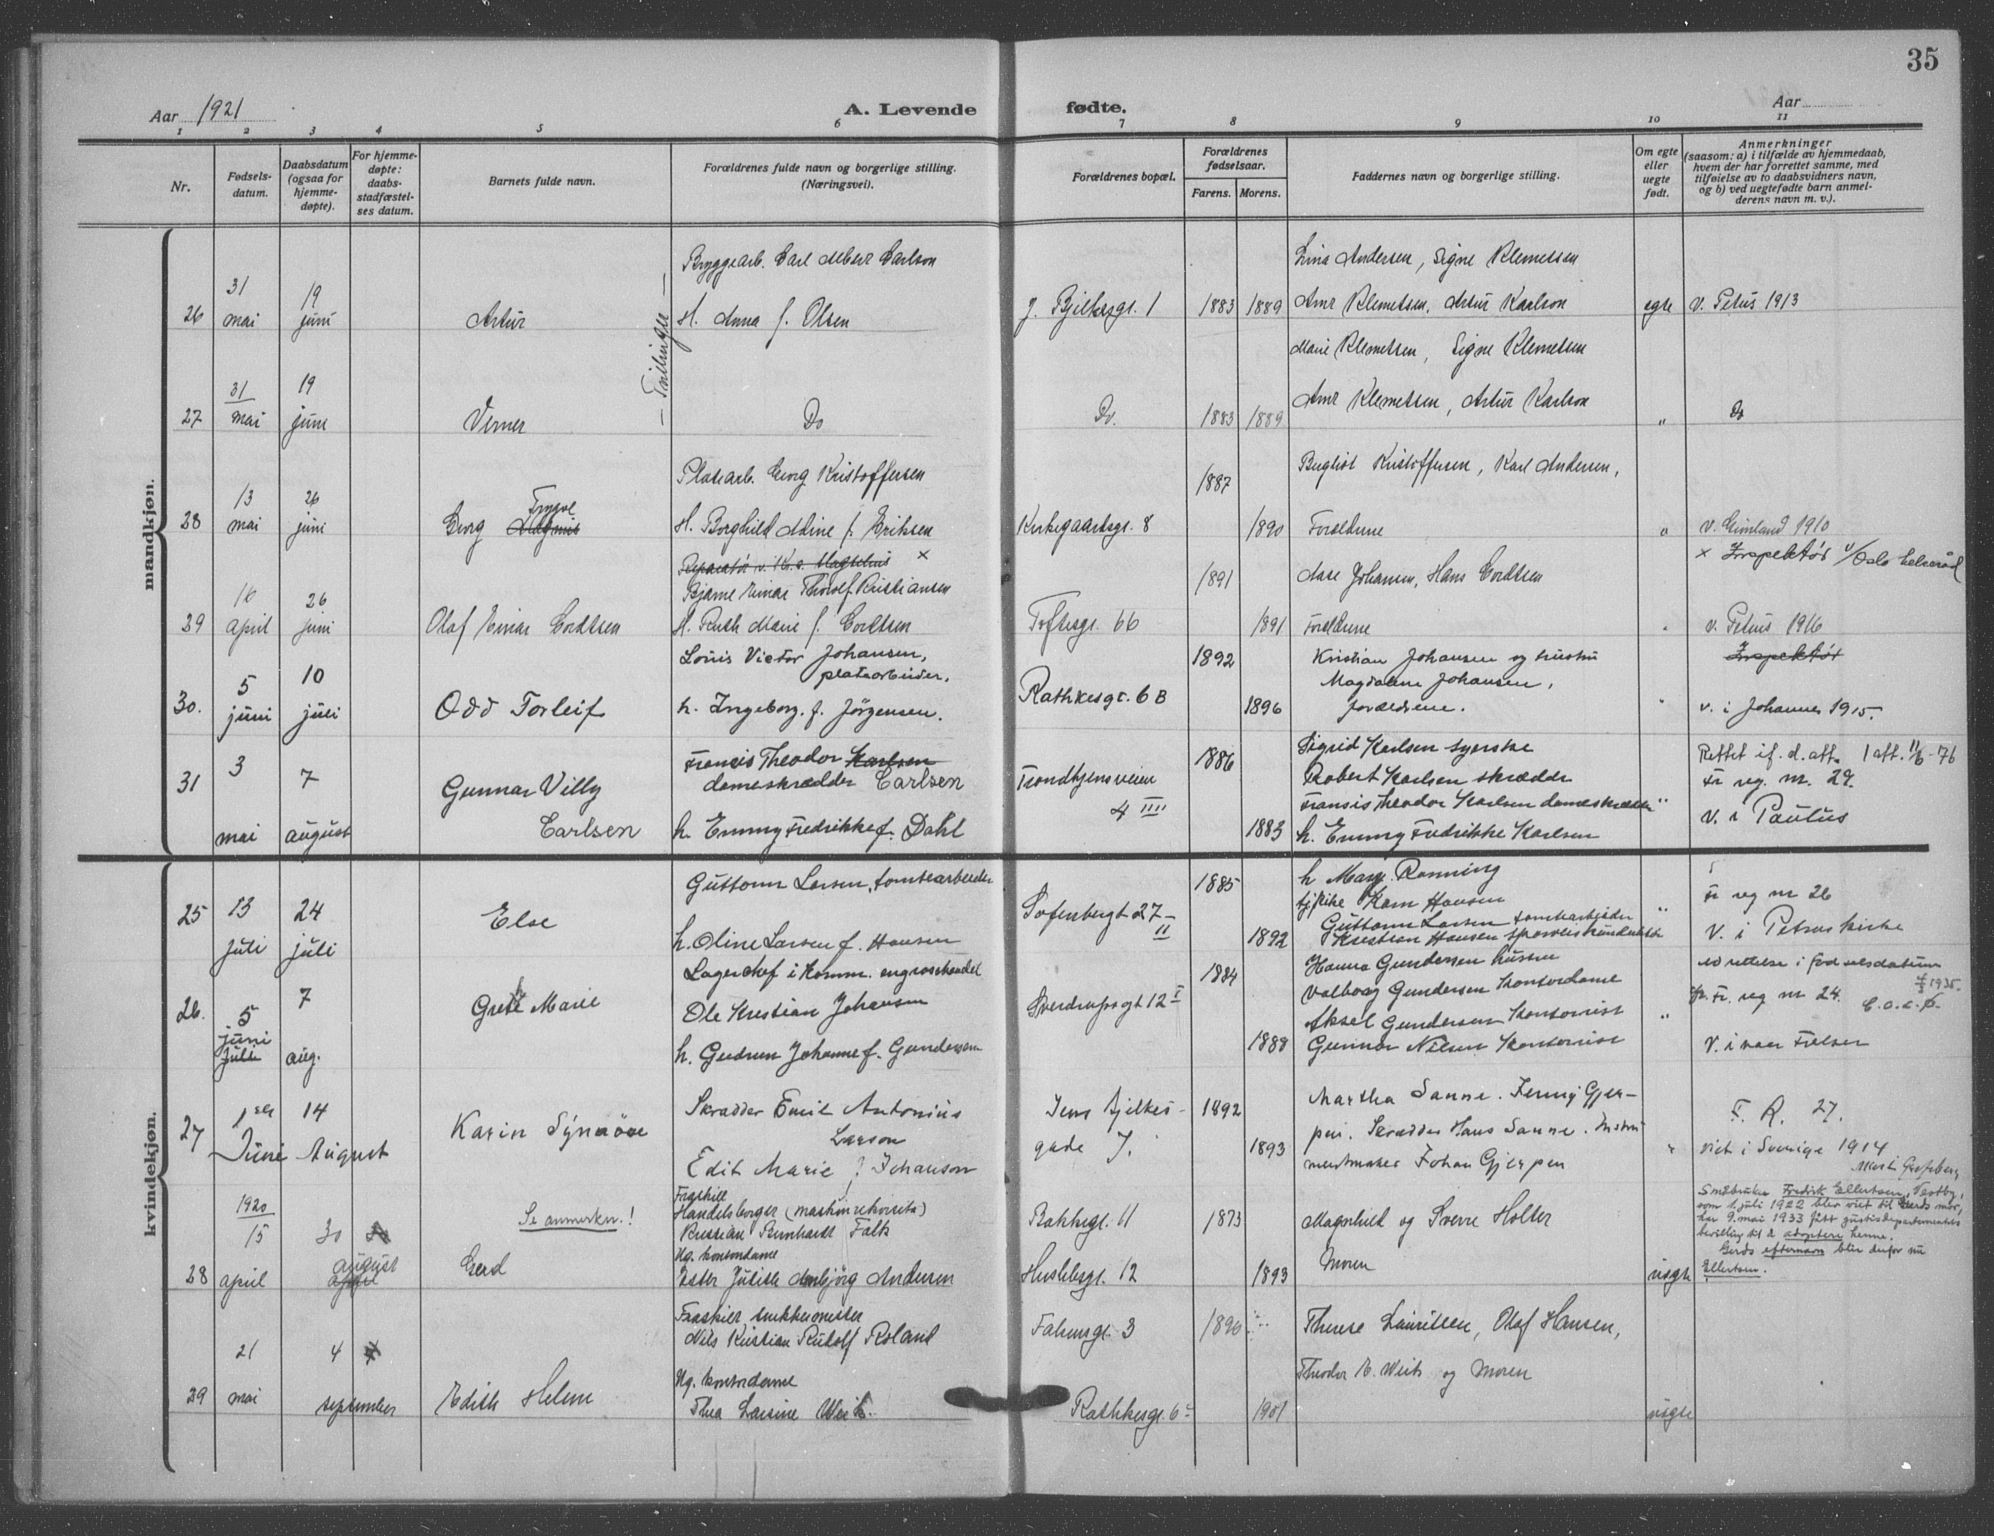 35
Aar 1921
A. Levende fødte.
Aar
1 2 3 4 5 6 7 8 9 10 11
Nr.
Fødsels-
datum.
Daabsdatum
(ogsaa for
hjemme-
døpte).
For hjemme-
døpte:
daabs-
stadfæstel-
ses datum.
Barnets fulde navn.
Forældrenes fulde navn og borgerlige stilling.
(Næringsvei).
Forældrenes bopæl.
Forældrenes
fødselsaar.
Farens. Morens.
Faddernes navn og borgerlige stilling.
Om egte
eller
uegte
født.
Anmerkninger
(saasom: a) i tilfælde av hjemmedaab,
hvem der har forrettet samme, med
tilføielse av to daabsvidners navn,
og b) ved uegtefødte barn anmel-
derens navn m. v.).
mandkjøn.
Bryggearb. Carl Albert Carlson
Lina Andersen, Signe Klemetsen
31 19
26 mai juni Artur H. Anna f. Olsen J. Bjelkesgt. 1 1883 1889 Klemetsen, Artur Karlson egte v. Petrus 1913
— Tvillinger —
Marie Klemetsen, Signe Klemetsen
31 19
27 mai juni Verner Do Do. 1883 1889 Klemetsen, Artur Karlson „ Do
Georg Kristoffersen 1887 Kristoffersen, Karl Andersen,
13 26 Trygve
28 mai juni Georg H. Borghild Aline f. Eriksen Kirkegaardsgt. 8 1890 Foreldrene „ v. Grønland 1910
Reparatør ×
× Inspektør v/ Oslo helseråd
Bjarne Einar Thorolf Kristiansen 1891 Aase Johansen, Hans Cordtsen
16 26
29 april juni Olaf Einar Cordtsen H. Ruth Marie f. Cordtsen Toftesgt. 66 1891 Foreldrene v. Petrus 1916
Louis Victor Johansen, 1892 Kristian Johansen og hustru Inspektør
platearbeider. Magdalene Johansen,
5 10
30. juni juli Odd Torleif h. Ingeborg. f. Jörgensen. Rathkesgt. 6 B 1896 forældrene. v. i Johannes 1915.
Francis Theodor Karlsen 1886 Sigrid Karlsen syerske Rettet if. d. att. 1 att. 11/6-76
3 7
31 Gunnar Villy dameskrædder Carlsen Trondhjemsveien Robert Karlsen skrædder Fr reg. nr. 29.
Carlsen 4 IIII Fransis Theodor Karlsen dameskrædder „
mai august h. Emmy Fredrikke f. Dahl 1883 h. Emmy Fredrikke Karlsen v. i Paulus
kvindekjøn.
Guttorm Larsen, tomtearbeider 1885 h Mary Rønning
25 13 24 Else Sofienbergt 27- Karn Hansen Fr reg nr 26
II Guttorm Larsen tomtearbeider „
juli juli h. Oline Larsen f. Hansen 1892 Kristian Hansen V. i Petrus kirke
Lagerchef i Komm. engroshandel 1884 Hanna Gundersen rettelse i fødselsdatum
26. 5 7 Grete Marie Ole Kristian Johansen Sverdrupsgt 12 I Valborg Gundersen Kontordame Fr. reg nr 24. 1935.
juni Aksel Gundersen Kontorist „
juli aug. h. Gudrun Johanne f. Gundersen 1888 Gunnar Nilsen Kontorist V. i vaar Frelser
27 1ste 14 Karin Synnöve Skrædder Emil Antonius Jens Bjelkes- 1892 Martha Sanne. Jenny Gjer- F. R. 27.
Larson gade 7. pen. Skrædder Hans Sanne. Instru
Juni August Edit Marie f Johanson 1893 mentmaker Johan Gjerpen „ viet i Sverige 1914
1920 Se anmerkn.! Fraskilt
Handelsborger (maskinrekvisita)
15 30 Kristian Bernhardt Falk Rathkegt. 11 1873 Magnhild og Sverre Holter
august Ug. kontordame
28 april april Gerd Ester Judith Annbjörg Andersen 12 1893 Moren uegte
Småbruker Fredrik Ellertsen, Vestby,
som 1. juli 1922 blev viet til Gerds mor,
har 9. mai 1933 fått justisdepartementets
bevilling til å adoptere henne.
Gerds efternavn blir derfor nu
Ellertsen.
Fraskilt snekkermester
21 4 Nils Kristian Rudolf Roland 3 1890 Therese Lauritsen, Olaf Hansen,
Ug. kontordame Theodor E. Weik og Moren
29 mai september Edith Helene Thea Larsine Weik. Rathkesgt. 6 1901 uegte